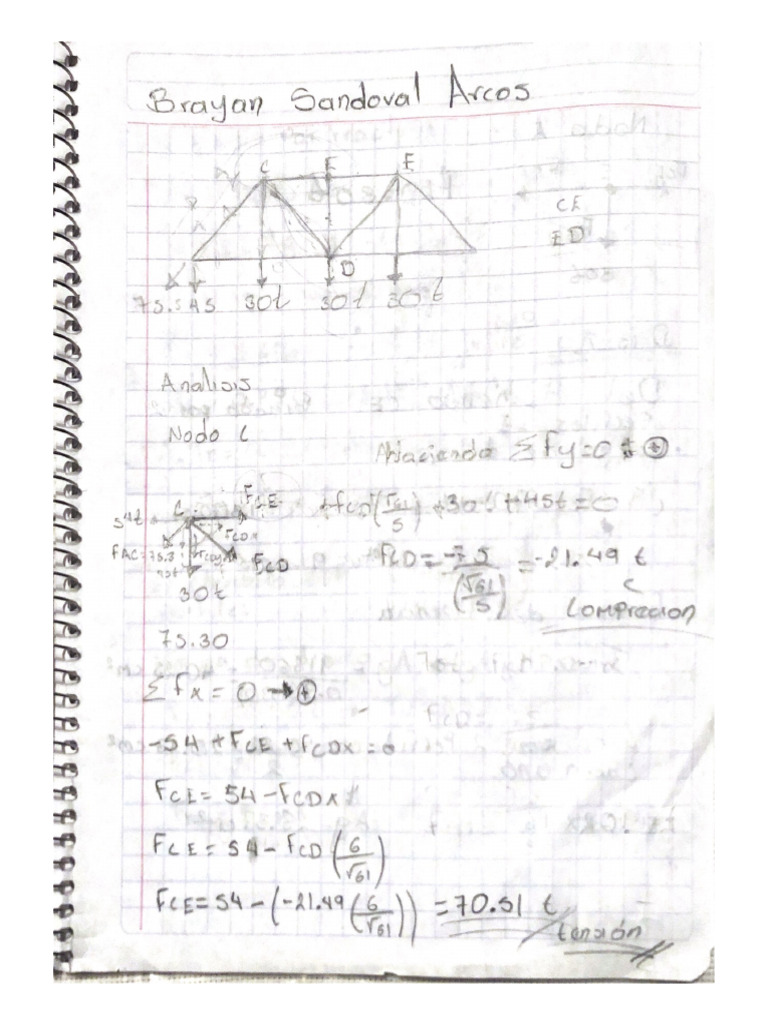 Brayan Sandoval Arcos
C F E
CE
ED
D
75.545 30t 30t 30t
Analisis
Nodo C
Haciendo Σ Fy=0
C FCE
54t FCDx
FAC=75.3 FCDy FCD
30t
FCD = = -21.49 t
C
Comprecion
75.30
Σ Fx = 0 → +
-54 + FCE + FCDx = 0
FCE = 54 - FCDx
FCE = 54 - FCD (6/√61)
FCE = 54 - (-21.49 (6/√61)) = 70.51 t
tensión